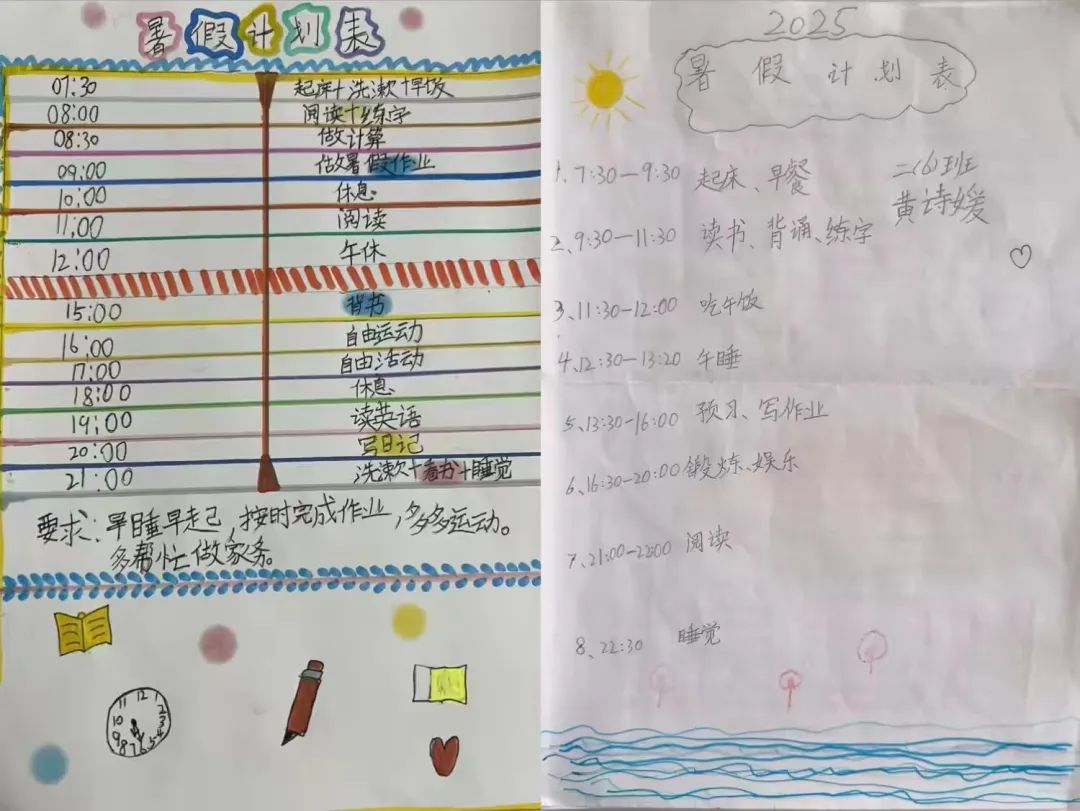 暑假计划表
07:30 起床+洗漱+早饭
08:00 阅读+练字
08:30 做计算
09:00 做暑假作业
10:00 休息
11:00 阅读
12:00 午休
15:00 背书
16:00 自由运动
17:00 自由活动
18:00 休息
19:00 读英语
20:00 写日记
21:00 洗漱+看书+睡觉
要求:早睡早起,按时完成作业,多多运动。
多帮忙做家务。
12 1 2 3 4 5 6 7 8 9 10 11
2025
暑假计划表
二(6)班
黄诗媛
1、7:30—9:30 起床、早餐
2、9:30—11:30 读书、背诵、练字
3、11:30—12:00 吃午饭
4、12:30—13:20 午睡
5、13:30—16:00 预习、写作业
6、16:30—20:00 锻炼、娱乐
7、21:00—22:00 阅读
8、22:30 睡觉